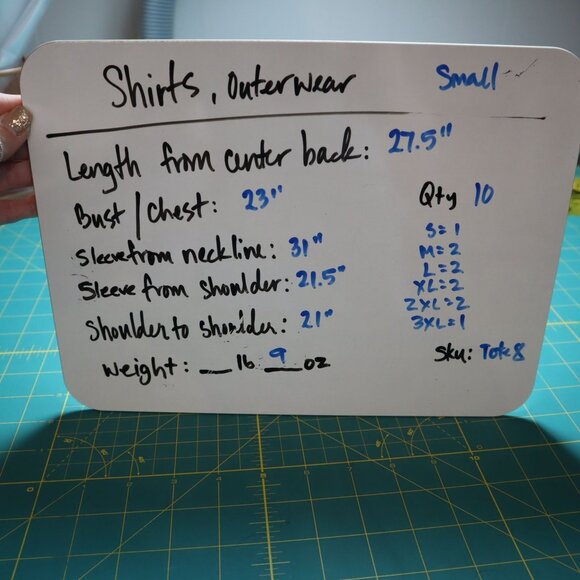 Shirts, Outerwear Small
Length from center back: 27.5"
Bust/Chest: 23"
Qty 10
Sleeve from neckline: 31"
Sleeve from shoulder: 21.5"
Shoulder to shoulder: 21"
S=1
M=2
L=2
XL=2
2XL=2
3XL=1
Weight: __ lb 9 oz
Sku: Tote 8